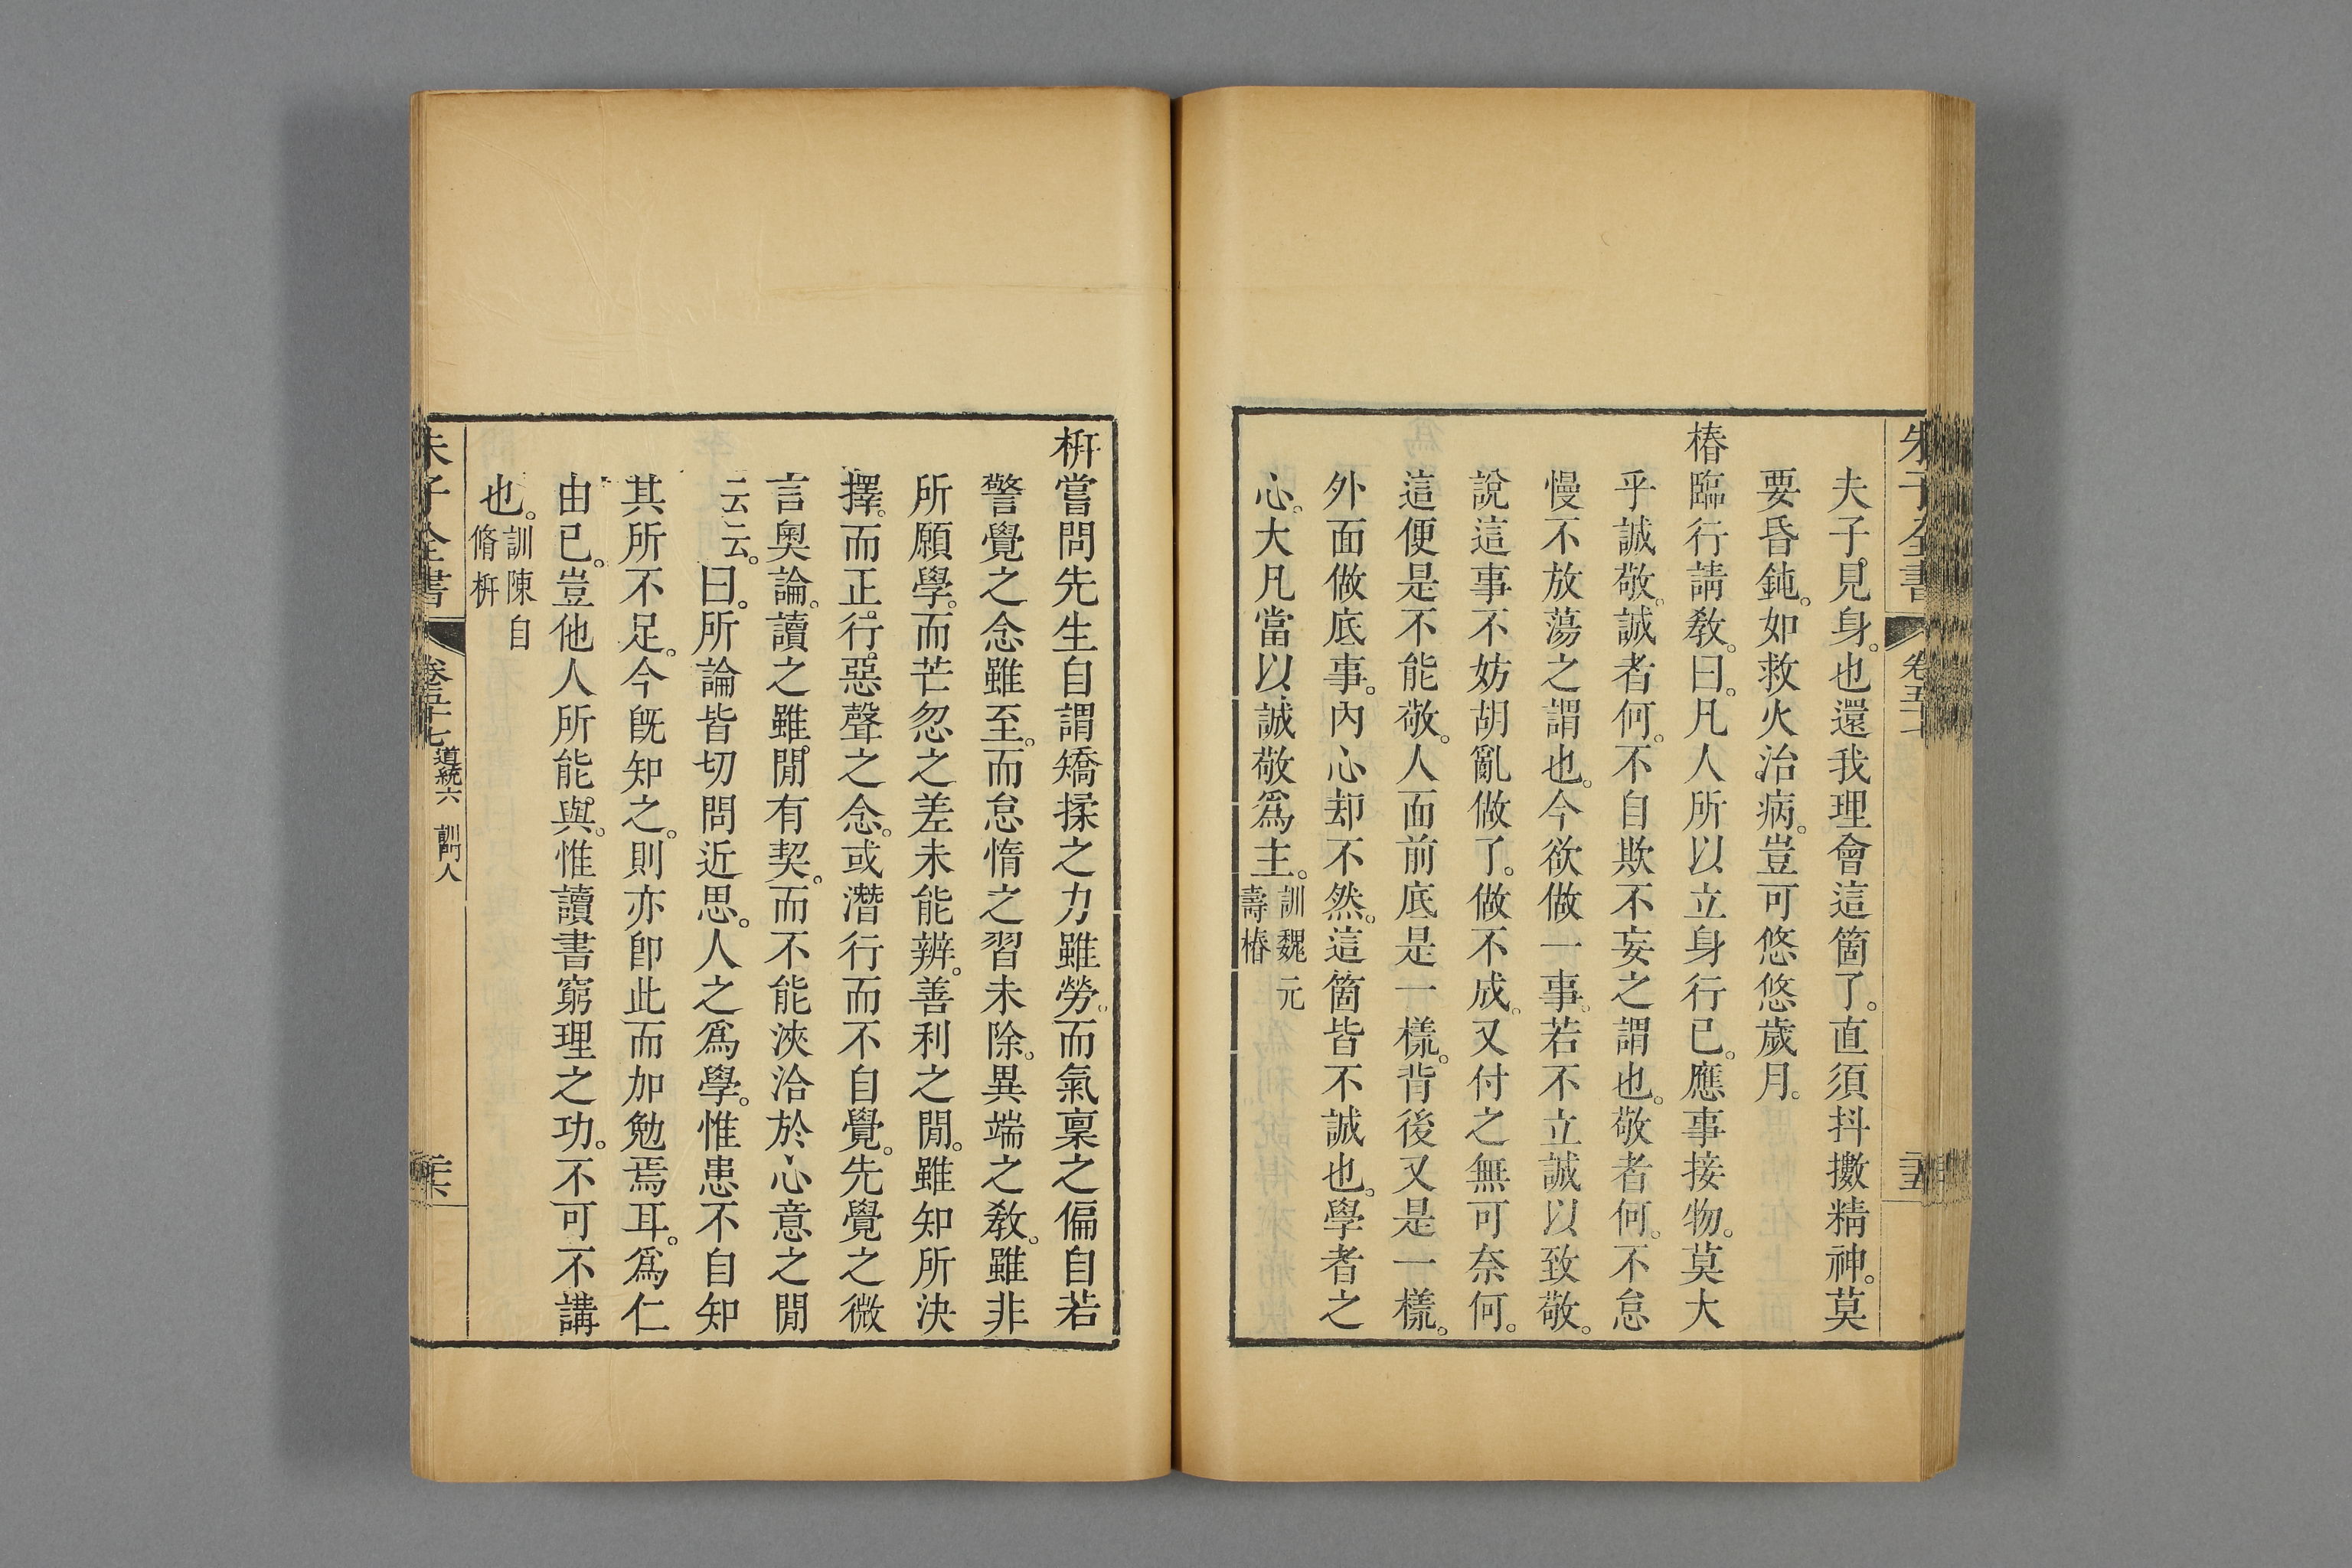 朱子全書 卷五十 二十五
夫子。見身。也還我理會這箇了。直須抖擻精神。莫
要昏鈍。如救火治病。豈可悠悠歲月。
椿臨行請教。曰。凡人所以立身行己。應事接物。莫大
乎誠敬。誠者何。不自欺不妄之謂也。敬者何。不怠
慢不放蕩之謂也。今欲做一事。若不立誠以致敬。
說這事不妨胡亂做了。做不成。又付之無可奈何。
這便是不能敬。人面前底是一樣。背後又是一樣。
外面做底事。內心却不然。這箇皆不誠也。學者之
心。大凡當以誠敬爲主。訓魏元
壽椿
枅嘗問先生自謂矯揉之力雖勞。而氣稟之偏自若
警覺之念雖至。而怠惰之習未除。異端之教。雖非
所願學。而芒忽之差未能辨。善利之閒。雖知所決
擇。而正行。惡聲之念。或潛行而不自覺。先覺之微
言奧論。讀之雖。閒有契。而不能浹洽於心意之閒
云云。曰。所論皆切問近思。人之爲學。惟患不自知
其所不足。今既知之。則亦卽此而加勉焉耳。爲仁
由已。豈他人所能與。惟讀書窮理之功。不可不講
也。訓陳自
脩枅
朱子全書 卷五十七 道統六 訓門人 二十六